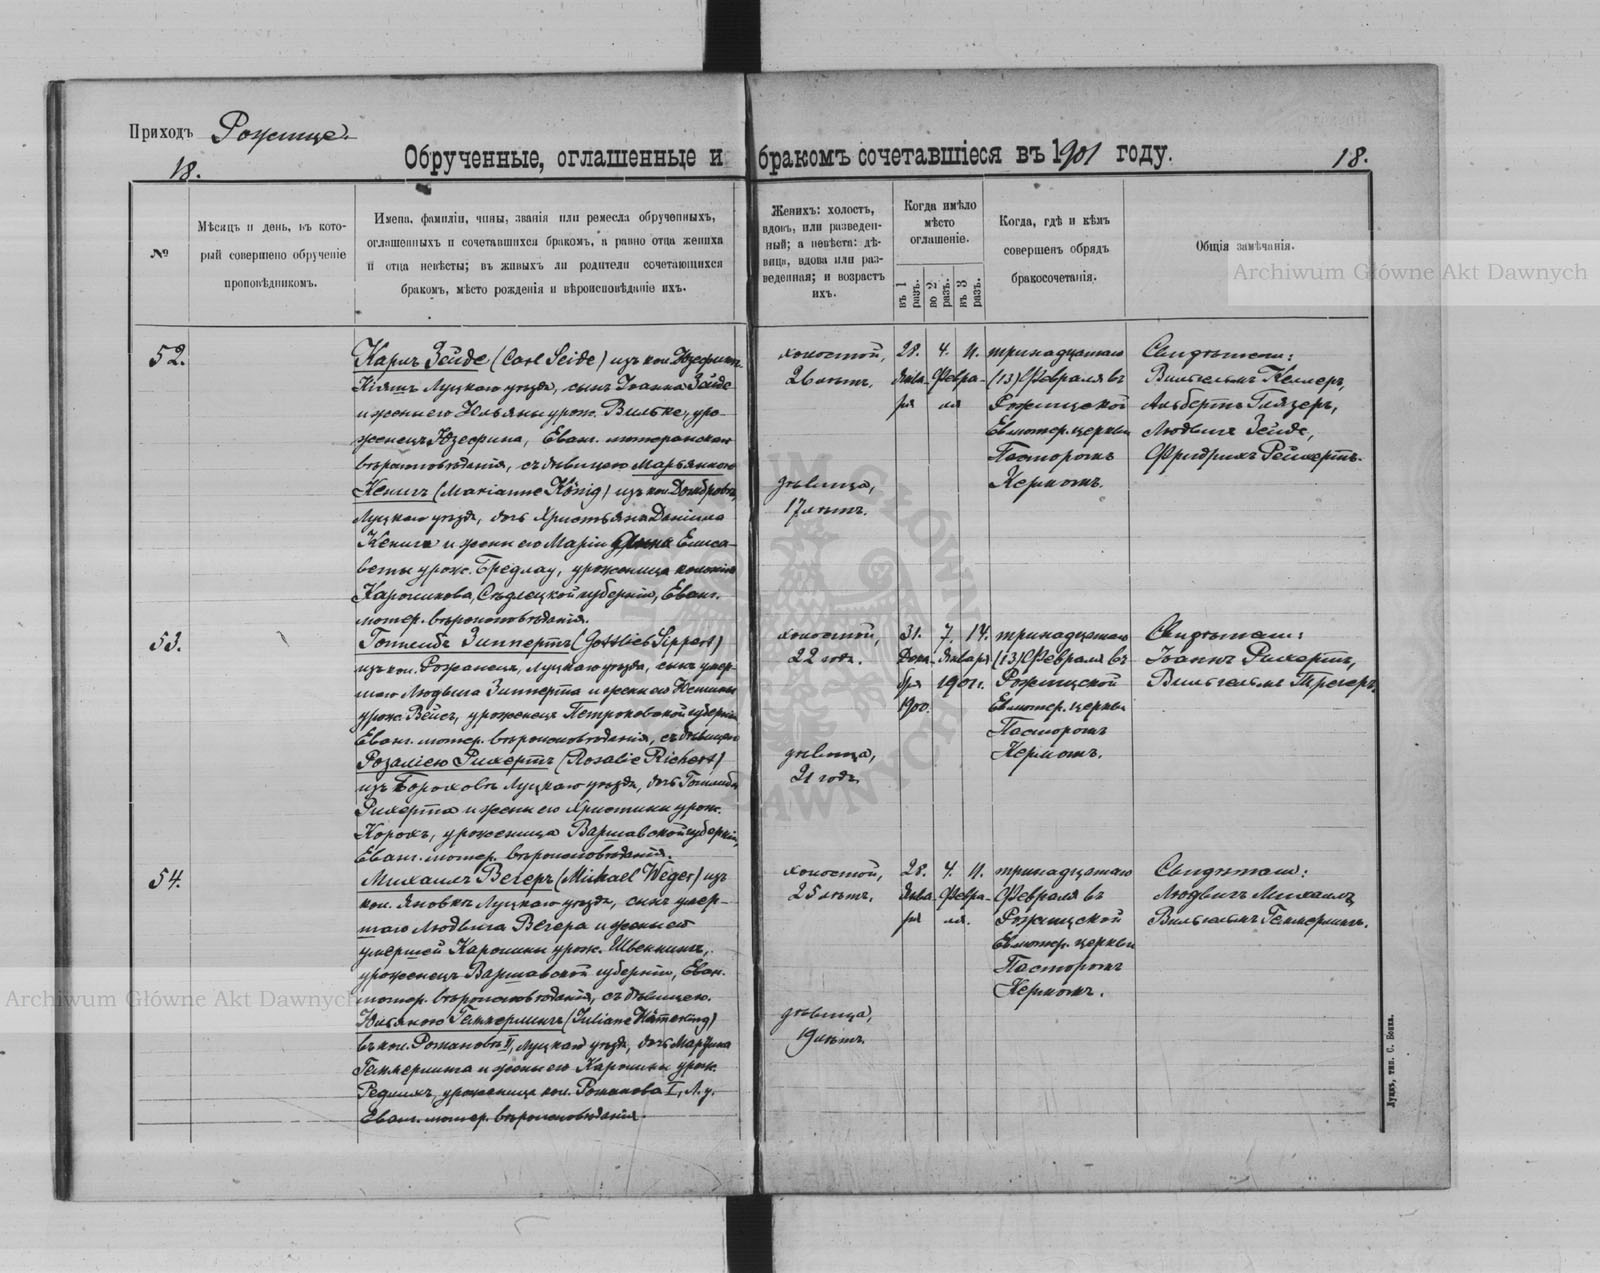 Приходъ Рожище.
18.
Обрученные, оглашенные и бракомъ сочетавшіеся въ 1901 году.
18.
№
Мѣсяцъ и день, въ кото-
рый совершено обрученіе
проповѣдникомъ.
Имена, фамиліи, чины, званія или ремесла обрученныхъ,
оглашенныхъ и сочетавшихся бракомъ, а равно отца жениха
и отца невѣсты; въ живыхъ ли родители сочетающихся
бракомъ, мѣсто рожденія и вѣроисповѣданіе ихъ.
Женихъ: холостъ,
вдовъ, или разведен-
ный; а невѣста: дѣ-
вица, вдова или раз-
веденная; и возрастъ
ихъ.
Когда имѣло
мѣсто
оглашеніе.
въ 1
разъ.
во 2
разъ.
въ 3
разъ.
Когда, гдѣ и кѣмъ
совершенъ обрядъ
бракосочетанія.
Общія замѣчанія.
Archiwum Główne Akt Dawnych
52.
Карлъ Зейде (Carl Seide) изъ кол. Юзефинъ-
Луцкаго уѣзда, сынъ Іоанна Зейде
и жены его Юльяны урож. Вильке, уро-
женецъ Юзефина, Еванг. лютеранскаго
вѣроисповѣданія, съ дѣвицею Марьянною
Кенигъ (Marianne König) изъ кол. Домбровъ,
Луцкаго уѣзда, дочь Христьяна Даніила
Кенига и жены его Маріи Анны Елиса-
веты урож. Бредлау, уроженица колоніи
Каролинова, Сѣдлецкой губерніи, Еванг.
лютер. вѣроисповѣданія.
холостой,
26 лѣтъ.
дѣвица,
17 лѣтъ.
28. 4. 11.
Янва- Февра-
ря ля
тринадцатаго
(13) Февраля въ
Рожищской
Ев. лютер. церкви
Пасторомъ
Керномъ.
Свидѣтели:
Вильгельмъ Келлеръ,
Альбертъ Глязеръ,
Людвигъ Зейде,
Фридрихъ Рейхертъ.
53.
Готлибъ Зиппертъ (Gottlieb Sippert)
изъ кол. Рожанецъ, Луцкаго уѣзда, сынъ умер-
шаго Людвига Зипперта и жены его
урож. Вейсъ, уроженецъ Петроковской губерніи,
Еванг. лютер. вѣроисповѣданія, съ дѣвицею
Розаліею Рихертъ (Rosalie Richert)
изъ Бороховъ Луцкаго уѣзда, дочь Готлиба
Рихерта и жены его Христины урож.
Корохъ, уроженица Варшавской губерніи,
Еванг. лютер. вѣроисповѣданія.
холостой,
22 годъ.
дѣвица,
21 годъ.
31. 7. 14.
Дека- Января
бря 1901 г.
1900.
тринадцатаго
(13) Февраля въ
Рожищской
Ев. лютер. церкви
Пасторомъ
Керномъ.
Свидѣтели:
Іоаннъ Рихертъ,
Вильгельмъ Трегеръ.
54.
Михаилъ Вегеръ (Michael Weger) изъ
кол. Яновкъ Луцкаго уѣзда, сынъ умер-
шаго Людвига Вегера и жены его
умершей Каролины урож. Швенкинъ,
уроженецъ Варшавской губерніи, Еван.
лютер. вѣроисповѣданія, съ дѣвицею
Юльяною Геммерлингъ (Juliane Hämerling)
въ кол. Романовъ II, Луцкаго уѣзда, дочь Мартина
Геммерлинга и жены его Каролины урож.
Редлихъ, уроженица кол. Романова I, Л. у.
Еванг. лютер. вѣроисповѣданія.
холостой,
25 лѣтъ.
дѣвица,
19 лѣтъ.
28. 4. 11.
Янва- Февра-
ря ля.
тринадцатаго
Февраля въ
Рожищской
Ев. лютер. церкви
Пасторомъ
Керномъ.
Свидѣтели:
Людвигъ Михаилъ
Вильгельмъ Геммерлингъ.
Archiwum Główne Akt Dawnych
Луцкъ, тип. С. Бокка.